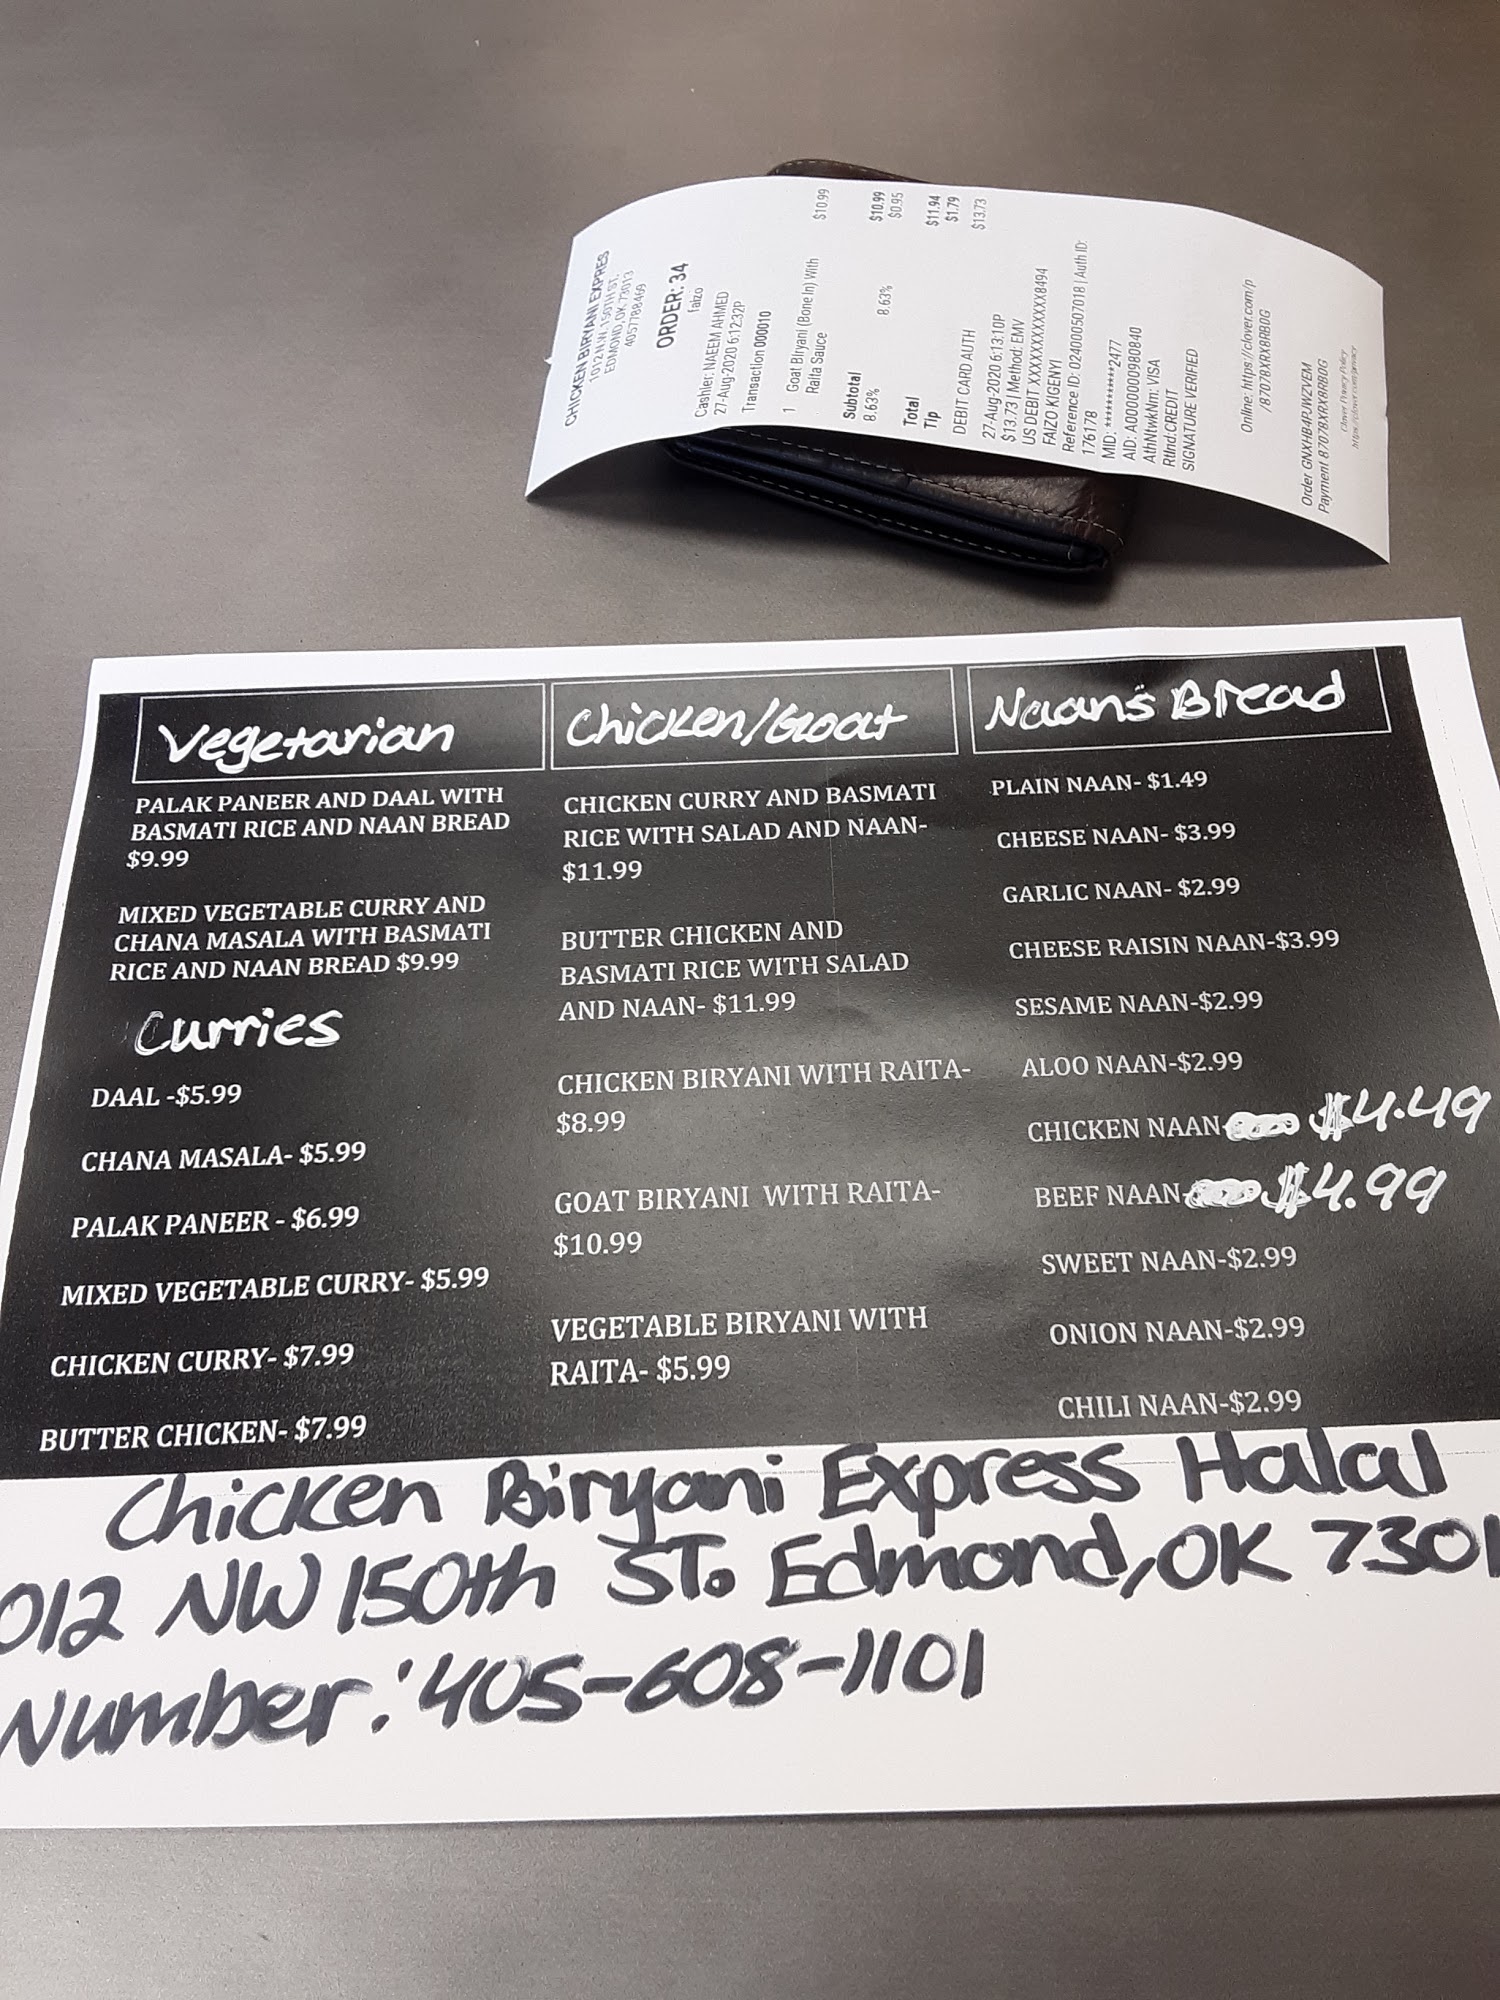 CHICKEN BIRYANI EXPRES
1012 N.W. 150TH ST.
EDMOND, OK 73013
4057788469
ORDER: 34
faizo
Cashier: NAEEM AHMED
27-Aug-2020 6:12:32P
Transaction 000010
1 Goat Biryani (Bone In) With $10.99
Raita Sauce
Subtotal $10.99
8.63% 8.63% $0.95
Total $11.94
Tip $1.79
$13.73
DEBIT CARD AUTH
27-Aug-2020 6:13:10P
$13.73 | Method: EMV
US DEBIT XXXXXXXXXXXX8494
FAIZO KIGENYI
Reference ID: 024000507018 | Auth ID:
176178
MID: ************2477
AID: A0000000980840
AthNtwkNm: VISA
RtInd:CREDIT
SIGNATURE VERIFIED
Online: https://clover.com/p
/8707BXRX8RB0G
Order GNXHB4PJWZVEM
Payment 8707BXRX8RB0G
Clover Privacy Policy
https://clover.com/privacy
Vegetarian
PALAK PANEER AND DAAL WITH
BASMATI RICE AND NAAN BREAD
$9.99
MIXED VEGETABLE CURRY AND
CHANA MASALA WITH BASMATI
RICE AND NAAN BREAD $9.99
Curries
DAAL -$5.99
CHANA MASALA- $5.99
PALAK PANEER - $6.99
MIXED VEGETABLE CURRY- $5.99
CHICKEN CURRY- $7.99
BUTTER CHICKEN- $7.99
Chicken/Goat
CHICKEN CURRY AND BASMATI
RICE WITH SALAD AND NAAN-
$11.99
BUTTER CHICKEN AND
BASMATI RICE WITH SALAD
AND NAAN- $11.99
CHICKEN BIRYANI WITH RAITA-
$8.99
GOAT BIRYANI WITH RAITA-
$10.99
VEGETABLE BIRYANI WITH
RAITA- $5.99
Naan's Bread
PLAIN NAAN- $1.49
CHEESE NAAN- $3.99
GARLIC NAAN- $2.99
CHEESE RAISIN NAAN-$3.99
SESAME NAAN-$2.99
ALOO NAAN-$2.99
CHICKEN NAAN $4.49
BEEF NAAN $4.99
SWEET NAAN-$2.99
ONION NAAN-$2.99
CHILI NAAN-$2.99
Chicken Biryani Express Halal
012 NW 150th ST. Edmond, OK 7301
Number: 405-608-1101